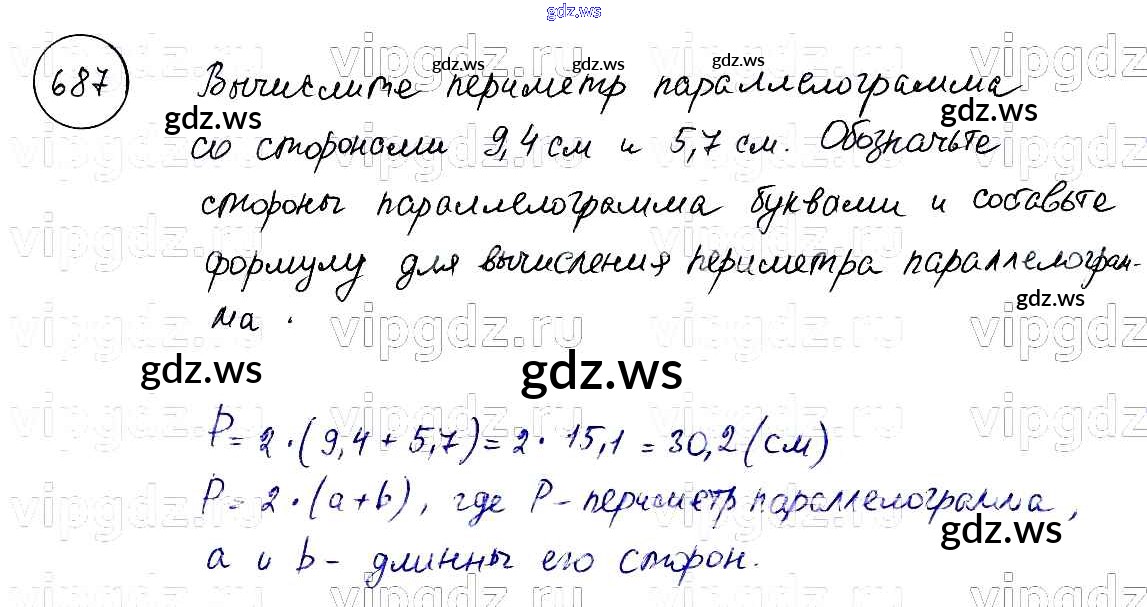 gdz.ws
687 Вычислите периметр параллелограмма
со сторонами 9,4 см и 5,7 см. Обозначьте
стороны параллелограмма буквами и составьте
формулу для вычисления периметра параллелограм-
ма.
P = 2·(9,4 + 5,7) = 2·15,1 = 30,2 (см)
P = 2·(a+b), где P - периметр параллелограмма,
a и b - длинны его сторон.